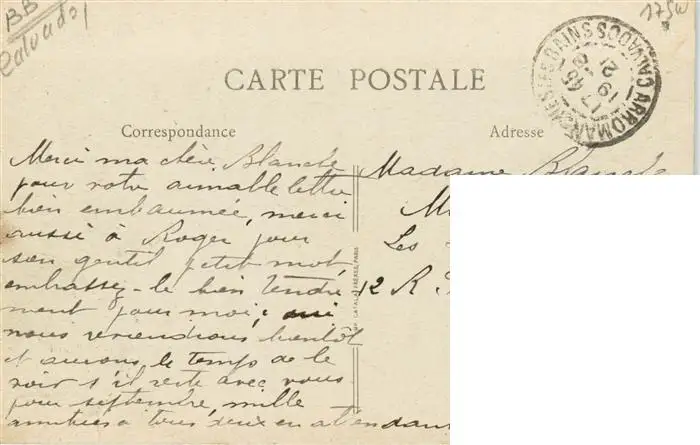 BB
Calvados
CARTE POSTALE
ARROMANCHES LES BAINS CALVADOS
17 45
19 -8
21
Correspondance
Adresse
Merci ma chère Blanche
pour votre aimable lettre
bien embaumée, merci
aussi à Roger pour
son gentil petit mot,
embrassez-le bien tendre
ment pour moi;
nous reviendrons bientôt
et aurons le temps de le
voir s'il reste avec vous
pour septembre, mille
amitiés à tous deux en attendant
Madame Blanche
Les
12 R
IMP. CATALA FRÈRES, PARIS